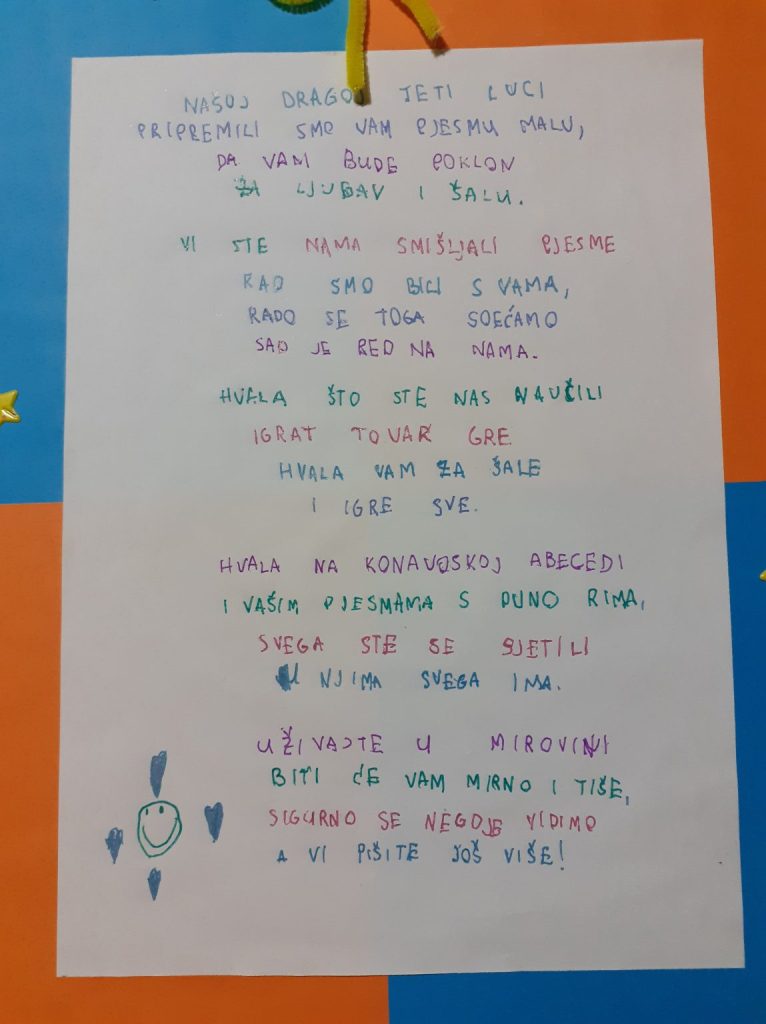 NAŠOJ DRAGOJ TETI LUCI
PRIPREMILI SMO VAM PJESMU MALU,
DA VAM BUDE POKLON
ZA LJUBAV I ŠALU.
VI STE NAMA SMIŠLJALI PJESME
RAD SMO BILI S VAMA,
RADO SE TOGA SJEĆAMO
SAD JE RED NA NAMA.
HVALA ŠTO STE NAS NAUČILI
IGRAT TOVAR GRE
HVALA VAM ZA ŠALE
I IGRE SVE.
HVALA NA KONAVOSKOJ ABECEDI
I VAŠIM PJESMAMA S PUNO RIMA,
SVEGA STE SE SJETILI
U NJIMA SVEGA IMA.
UŽIVAJTE U MIROVINI
BITI ĆE VAM MIRNO I TIŠE,
SIGURNO SE NEGDJE VIDIMO
A VI PIŠITE JOŠ VIŠE!